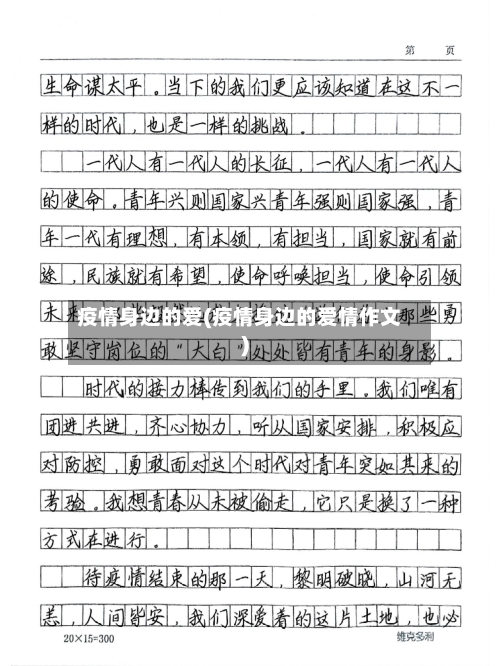 第 页
生命谋太平。当下的我们更应该知道在这不一
样的时代，也是一样的挑战。
一代人有一代人的长征，一代人有一代人
的使命。青年兴则国家兴青年强则国家强，青
年一代有理想，有本领，有担当，国家就有前
途，民族就有希望，使命呼唤担当，使命引领
未来
那些勇
疫情身边的爱(疫情身边的爱情作文
)
敢坚守岗位的“大白”处处皆有青年的身影。
时代的接力棒传到我们的手里。我们唯有
团进共进，齐心协力，听从国家安排，积极应
对防控，勇敢面对这个时代对青年突如其来的
考验。我想青春从未被偷走，它只是换了一种
方式在进行。
待疫情结束的那一天，黎明破晓，山河无
恙，人间皆安，我们深爱着的这片土地，也必
20×15=300
维克多利